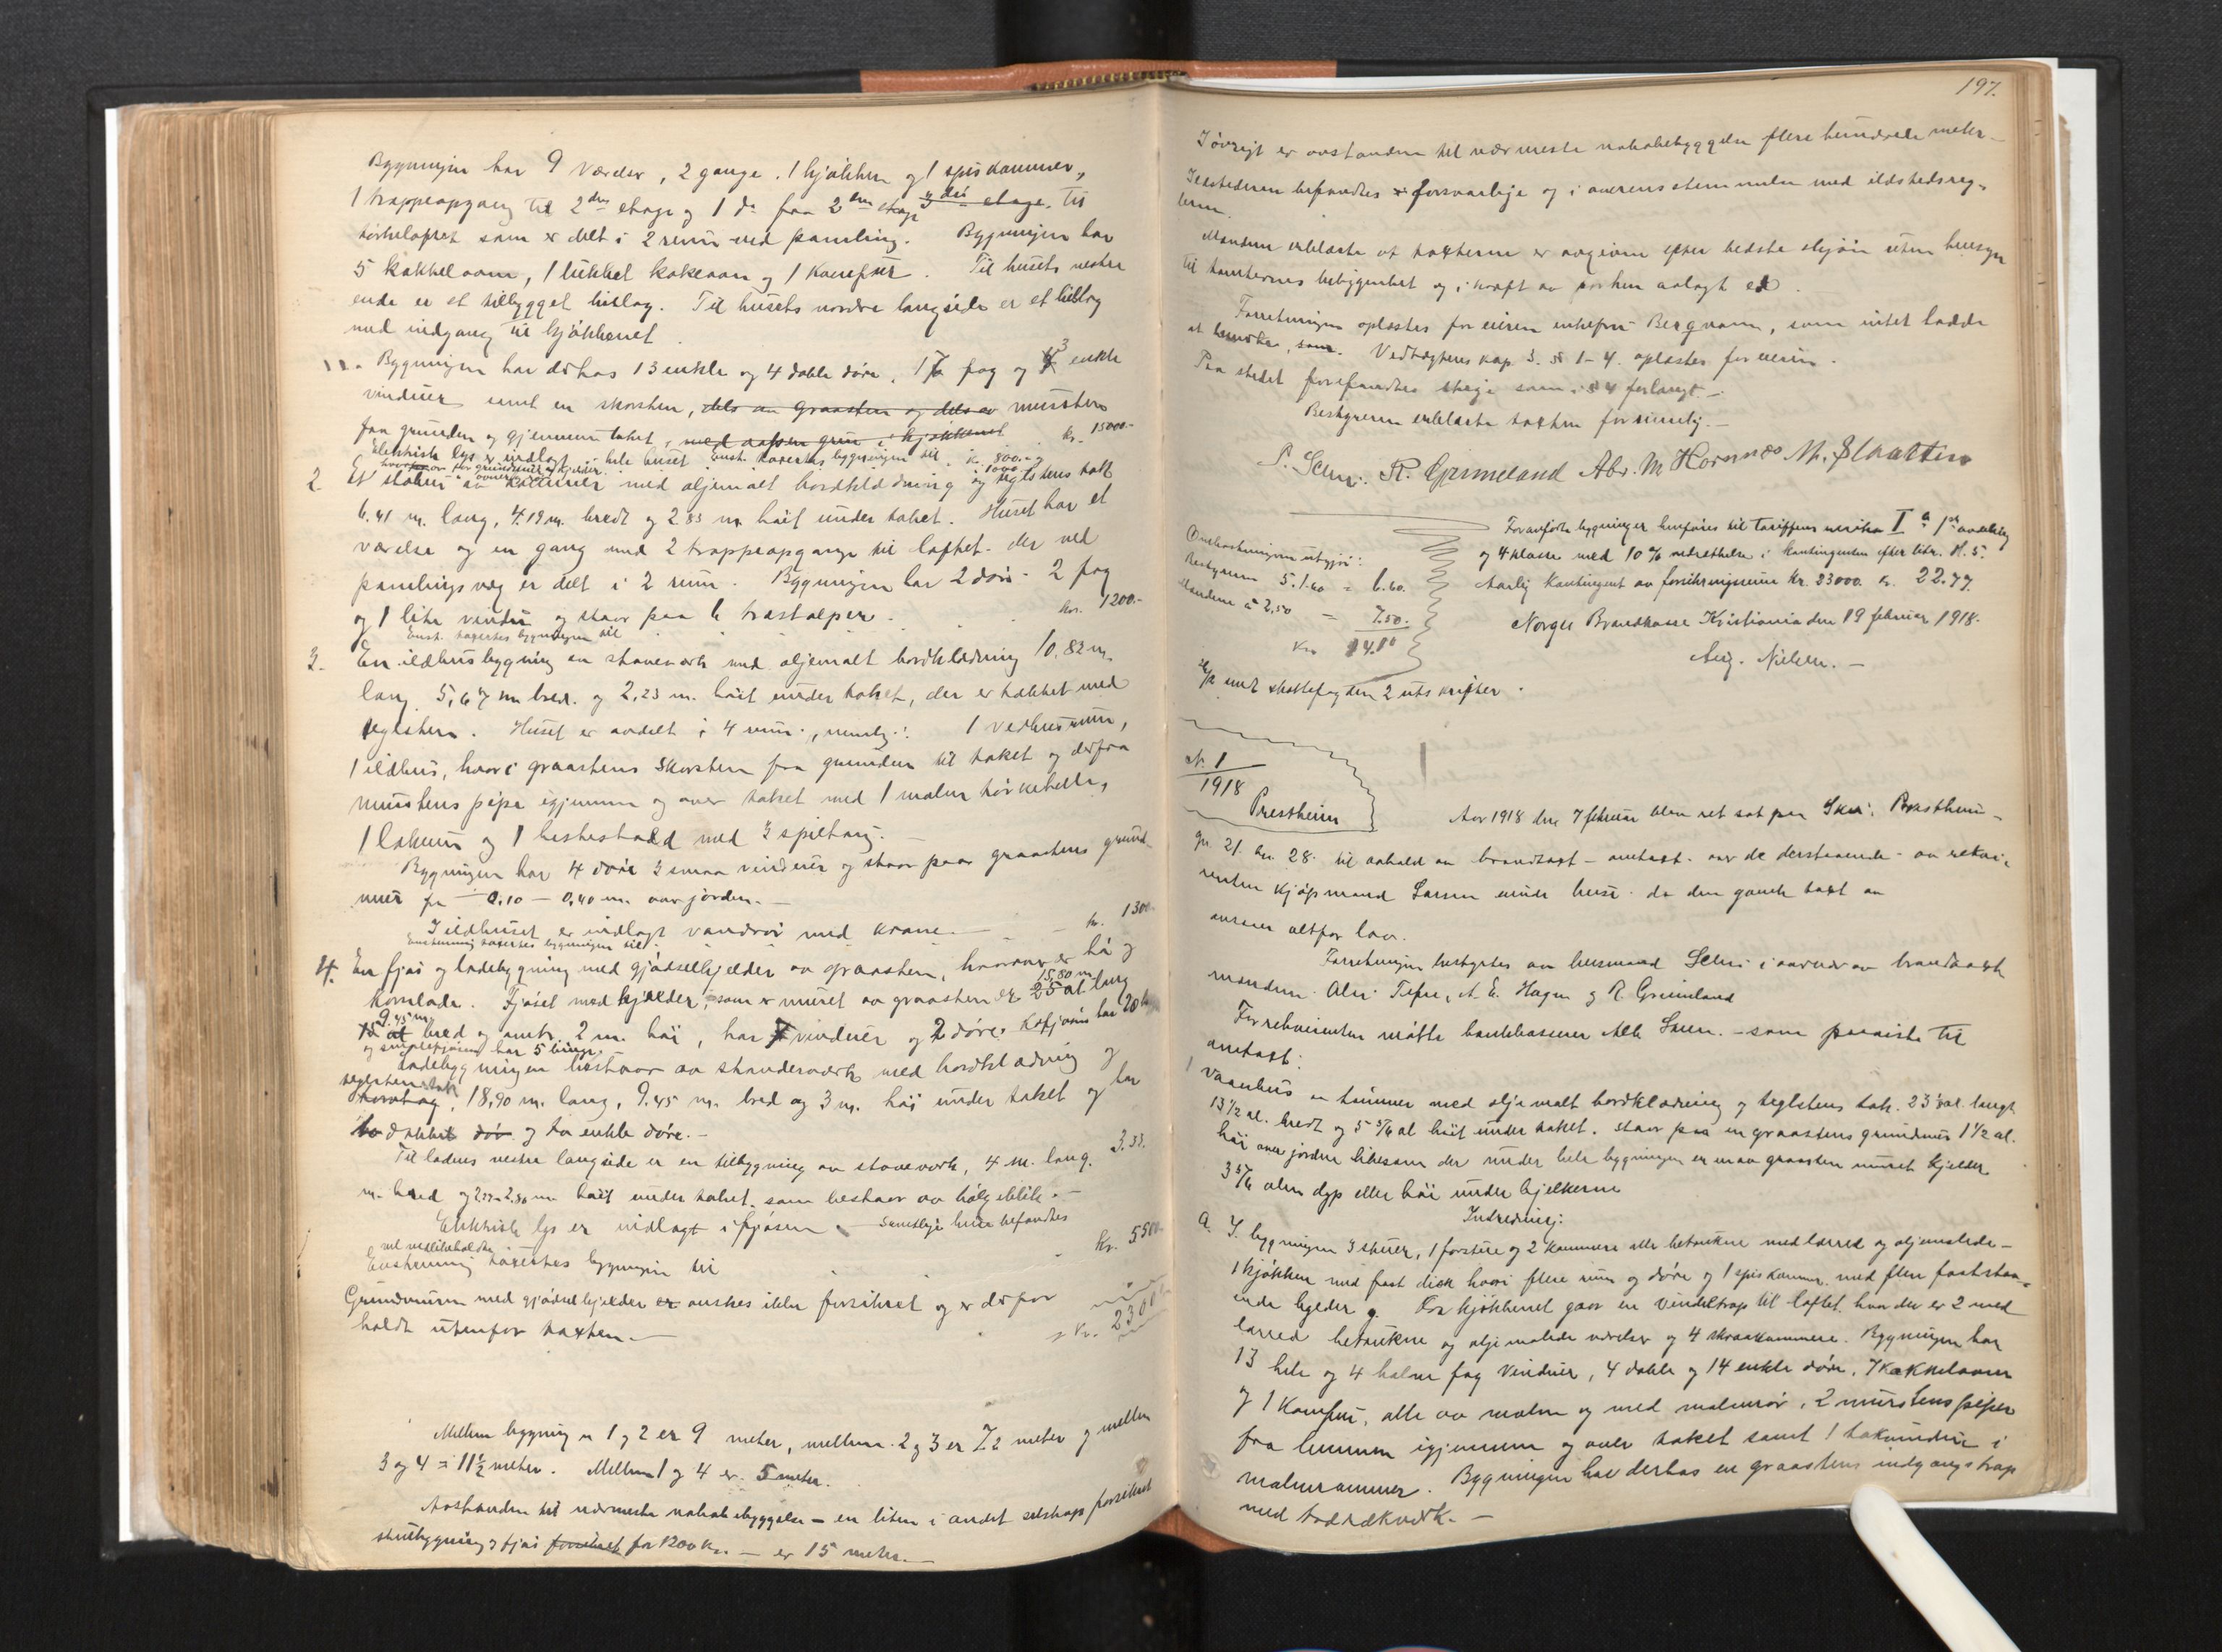 Bygningen har 9 værelser, 2 gange, 1 kjøkken og 1 spiskammer,
1 trappeopgang til 2den etage og 1 do fra 2den etage til
tørkeloftet som er delt i 2 rum ved paneling. Bygningen har
5 kakkelovne, 1 lukket kokeovn og 1 Komfur. Til husets vestre
ende er et tilbygget bislag. Til husets nordre langside er et bislag
med indgang til kjøkkenet.
Bygningen har derhos 13 enkle og 4 doble døre, 17 fag og 3 enkle
vinduer samt en skorsten, dels av graasten og dels av mursten
fra grunden og gjennem taket, med aapen grue i kjøkkenet kr. 15000.-
Elektrisk lys er indlagt i hele huset Enst. taxertes bygningen til kr. 800.-
2. Et stabur av tømmer med oljemalt bordklædning og teglstens takt
6.41 m. lang, 4.19 m. bredt og 2.83 m. høit under taket. Huset har et
værelse og en gang med 2 trappeopgange til loftet. der ved
panelingsvæg er delt i 2 rum. Bygningen har 2 døre 2 fag
og 1 lite vindu og staar paa 6 træstolper.
Enst. taxertes bygningen til kr. 1200.-
3. En ildhusbygning av stavverk med oljemalt bordklædning 10,82 m.
lang, 5,67 m bred. og 2,23 m. høit under taket, der er tækket med
teglsten. Huset er avdelt i 4 rum, nemlig: 1 vedhusrum,
1 ildhus, hvori graastens skorsten fra grunden til taket og derfra
murstens pipe igjennem og over taket med 1 malm tørkehelle,
1 lokum og 1 hestestald med 3 spiltaug.
Bygningen har 4 døre 3 smaa vinduer og staar paa graastens grund-
mur fra 0,10 - 0,40 m. over jorden.
I ildhuset er indlagt vandrør med krane.
Enstemmig taxertes bygningen til kr. 1300.-
4. En fjøs og ladebygning med gjødselkjelder av graasten, hvorover er hø og
kornlade. Fjøset med kjelder, som er muret av graasten er 15,80 m. 25 al lang
9.45 m. 15 al bred og omtr. 2 m. høi, har 7 vinduer og 2 døre. Kofjøsen har 20
og smalefjøsen har 5 binge.
Ladebygningen bestaar av stenderverk med bordklædning og
teglstenstak, 18,90 m. lang, 9.45 m. bred og 3 m. høi under taket og har
to dobbelt dør og to enkle døre.
Til ladens vestre langside er en tilbygning av stavverk, 4 m. lang, 3.33.
m. bred og 2.37-2.80 m. høit under taket, som bestaar av bølgeblik.
Elektrisk lys er indlagt i fjøsen. Samtlige huse befandtes
vel vedlikeholdte
Enstemmig taxertes bygningen til kr. 5500.-
Grundmuren med gjødselkjelder er ønskes ikke forsikret og er derfor
holdt utenfor taxten. kr. 23000
Mellem bygning n 1 og 2 er 9 meter, mellem 2 og 3 er 7½ meter og mellem
3 og 4 = 11½ meter. Mellem 1 og 4 er 5 meter.
Avstanden til nærmeste nabobebyggelse - en liten i andet selskap forsikret
stuebygning og fjøs forsikret for 1200 kr. - er 15 meter.
197.
I øvrigt er avstanden til nærmeste nabobebyggelse flere hundrede meter.
Ildstederne befandtes forsvarlige og i overensstemmelse med ildstedsreg-
lerne.
Mændene erklærte at taxterne er avgivne efter bedste skjøn uten hensyn
til tomternes bebyggethet og i kraft av avlagt ed.
Forretningen oplæstes for eieren enkefru Bergvam, som intet hadde
at bemerke, som. Vedtægternes kap. 3. §§ 1-4. oplæstes for eieren.
Paa stedet forefandtes stige som i § 4 forlangt.
Bestyreren erklærte taxten forsvarlig.
R. Grimeland Abr. M. Hornnæs M. Slaatten
Foranførte bygninger henføres til tariffens a 1ste avdeling
og 4 klasse med 10% nedsættelse i kontingenten efter litr. H. 5.
Aarlig kontingent av forsikringssum kr. 23000. kr. 22.77
Norges Brandkasse Kristiania den 19 februar 1918.
Aug. Nielsen.
Omkostningen utgjør:
Bestyreren 5.1.60 = 6.60.
Mændene a 2.50 = 7.50.
Kr 14.10
sendt skattefogden 2 utskrifter.
Nr. 1
1918
Prestheim
Aar 1918 den 7 februar blev ret sat paa Prestheim
gn. 21. bn. 28. til avhold av brandtaxt - omtaxt over de derstaaende av rekvi-
renten kjøpmand Larsen eiende huse, da den gamle taxt an
ansees altfor lav.
Forretningen bestyrtes av lensmand i nærvær av brandtaxt
mændene: A. E. Hagen og R. Grimeland
For rekvirenten møtte som paaviste til
omtaxt:
1 Vaanhus av tømmer med oljemalt bordklædning og teglstens tak. 23½ al. langt
13½ al. bredt og 5 5/6 al høit under taket. staar paa en graastens grundmur 1½ al.
høi over jorden likesom der under hele bygningen er en av graasten muret kjelder
3 5/6 alen dyp eller høi under bjelkerne
Indredning:
a. I bygningen 3 stuer, 1 forstue og 2 kammere alle betrukne med lærred og oljemalede -
1 kjøkken med fast disk hvori flere rum og døre og 1 spiskammer med flere faststaa-
ende hylder og. Fra kjøkkenet gaar en vindeltrap til loftet hvor der er 2 med
lærred betrukne og oljemalede værelser og 4 skraakammere. Bygningen har
13 hele og 4 halve fag vinduer, 4 doble og 14 enkle døre, 7 kakkelovner
og 1 Komfur, alle av malm og med malmrør, 2 murstenspiper
fra bunnen igjennem og over taket samt 1 takvindu i
malmrammer. Bygningen har derhos en graastens indgangstrap
med trærækverk.